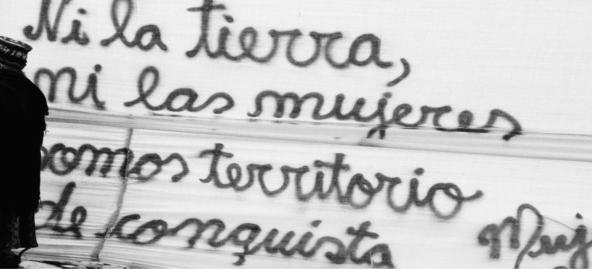 Ni la tierra,
ni las mujeres
somos territorio
de conquista
Muj